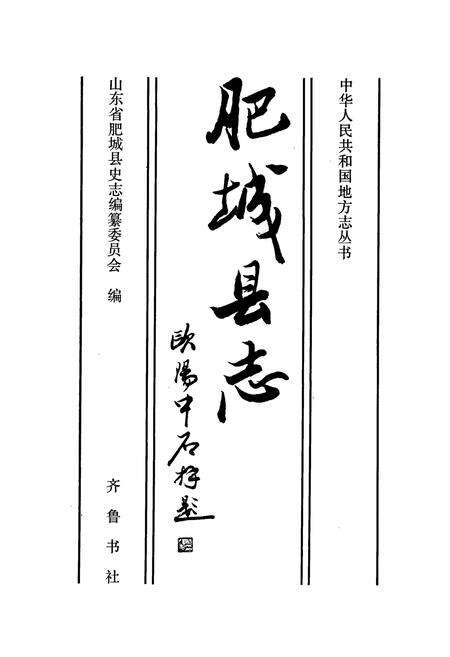 中华人民共和国地方志丛书
肥城县志
欧阳中石拜题
山东省肥城县史志编纂委员会 编
齐鲁书社